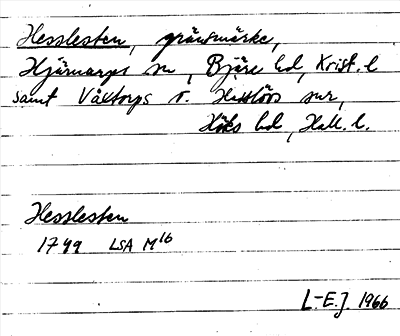 Hesslesten, gränsmärke,
Hjärnarps sn, Bjäre hd, Krist. l
samt Våxtorps o. Hasslövs snr,
Höks hd, Hall. l.
Hesslesten
1749 LSA M16
L-E.J. 1966